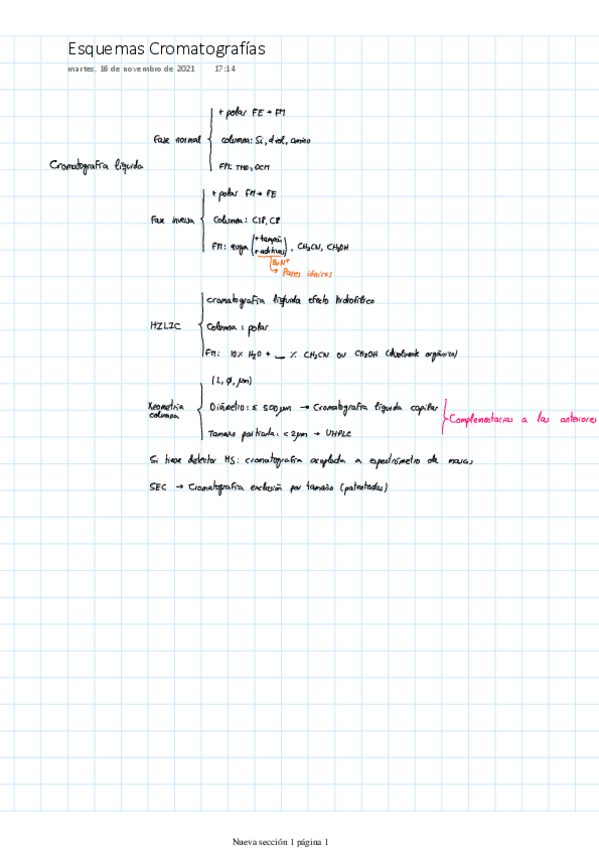 Esquemas Cromatografías
martes, 16 de novembro de 2021 17:14
+ polar FE → FM
Fase normal
columna: Si, diol, amino
Cromatografía líquida
+ polar FM → FE
Fase inversa
Columna: C18, C8
FM: auga (+ tampón + aditivos), CH3CN, CH3OH
Pares iónicos
cromatografía líquida efecto hidrofílico
HILIC
Columna: polar
FM: 10% H2O + __ % CH3CN ou CH3OH (disolvente orgánico)
(L, Ø, µm)
Xeometría columna
Diámetro: ≤ 500 µm → Cromatografía líquida capilar
Complementarias a las anteriores
Tamaño partícula: < 2µm → UHPLC
Si tiene detector MS: cromatografía acoplada a espectrómetro de masas
SEC → Cromatografía exclusión por tamaño
Nueva sección 1 página 1